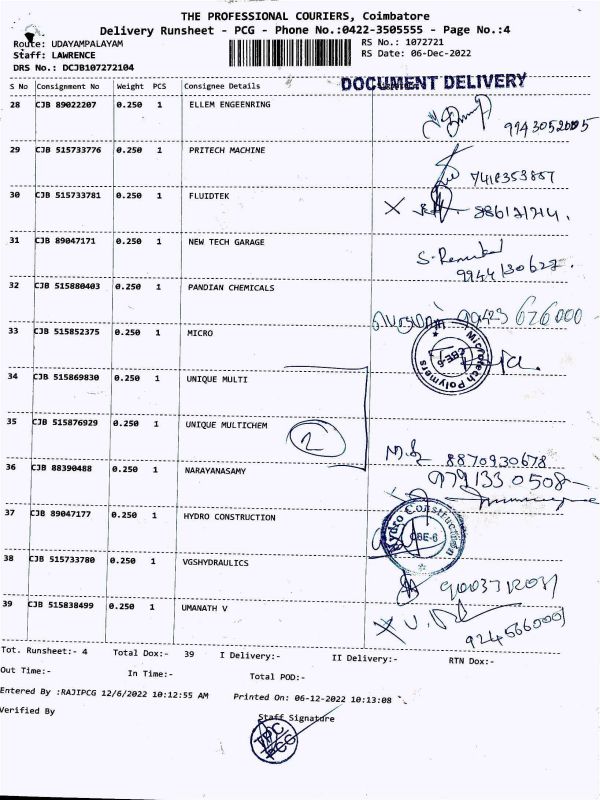 THE PROFESSIONAL COURIERS, Coimbatore
Delivery Runsheet - PCG - Phone No.:0422-3505555 - Page No.:4
Route: UDAYAMPALAYAM
RS No.: 1072721
Staff: LAWRENCE
RS Date: 06-Dec-2022
DRS No.: DCJB107272104
DOCUMENT DELIVERY
S No Consignment No Weight PCS Consignee Details
28 CJB 89022207 0.250 1 ELLEM ENGEENRING
9943052005
29 CJB 515733776 0.250 1 PRITECH MACHINE
7418353857
30 CJB 515733781 0.250 1 FLUIDTEK
31 CJB 89047171 0.250 1 NEW TECH GARAGE
9944130627.
32 CJB 515880403 0.250 1 PANDIAN CHEMICALS
33 CJB 515852375 0.250 1 MICRO
Microtech Polymers
CBE-6
34 CJB 515869830 0.250 1 UNIQUE MULTI
35 CJB 515876929 0.250 1 UNIQUE MULTICHEM
2
8870930678
36 CJB 88390488 0.250 1 NARAYANASAMY
9791330508
37 CJB 89047177 0.250 1 HYDRO CONSTRUCTION
Hydro Construction
CBE-6
38 CJB 515733780 0.250 1 VGSHYDRAULICS
39 CJB 515838499 0.250 1 UMANATH V
Tot. Runsheet:- 4 Total Dox:- 39 I Delivery:- II Delivery:- RTN Dox:-
Out Time:- In Time:- Total POD:-
Entered By :RAJIPCG 12/6/2022 10:12:55 AM Printed On: 06-12-2022 10:13:08
Verified By
Staff Signature
TPC
PCG